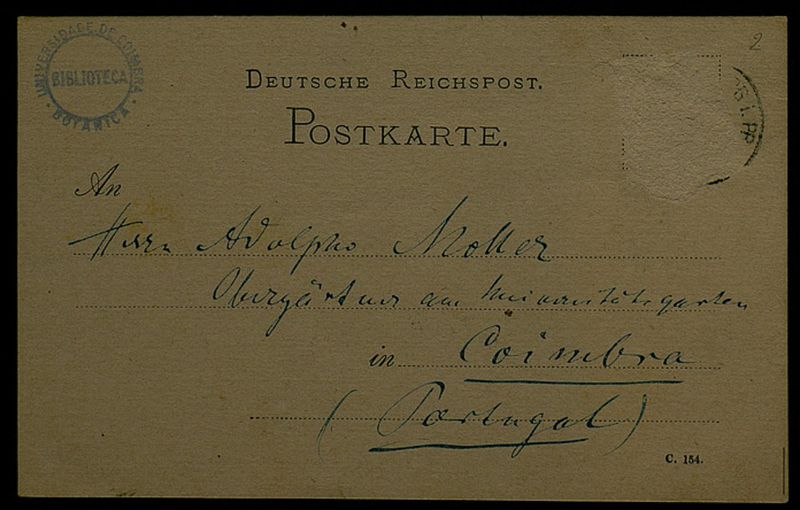 2
UNIVERSIDADE DE COIMBRA
BIBLIOTECA
BOTANICA
DEUTSCHE REICHSPOST.
POSTKARTE.
An
Herrn Adolpho Moller
Obergärtner am Universitätsgarten
in Coimbra
(Portugal)
C. 154.